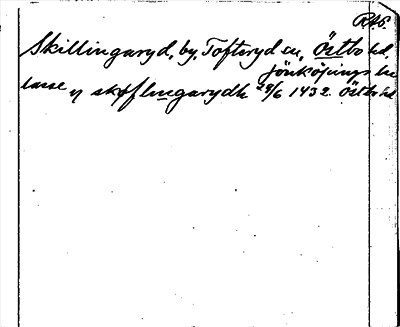 RAS.
Skillingaryd, by, Tofteryd sn, Östbo hd,
Jönköpings län
lasse y skøflingarydh 29/6 1432. Östbo hd